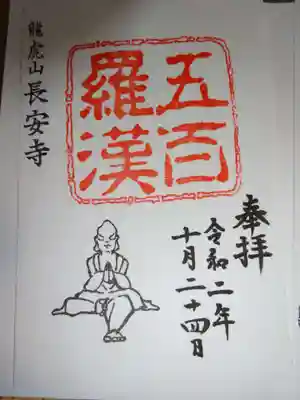 奉拝
令和二年
十月二十四日
五百
羅漢
龍虎山 長安寺